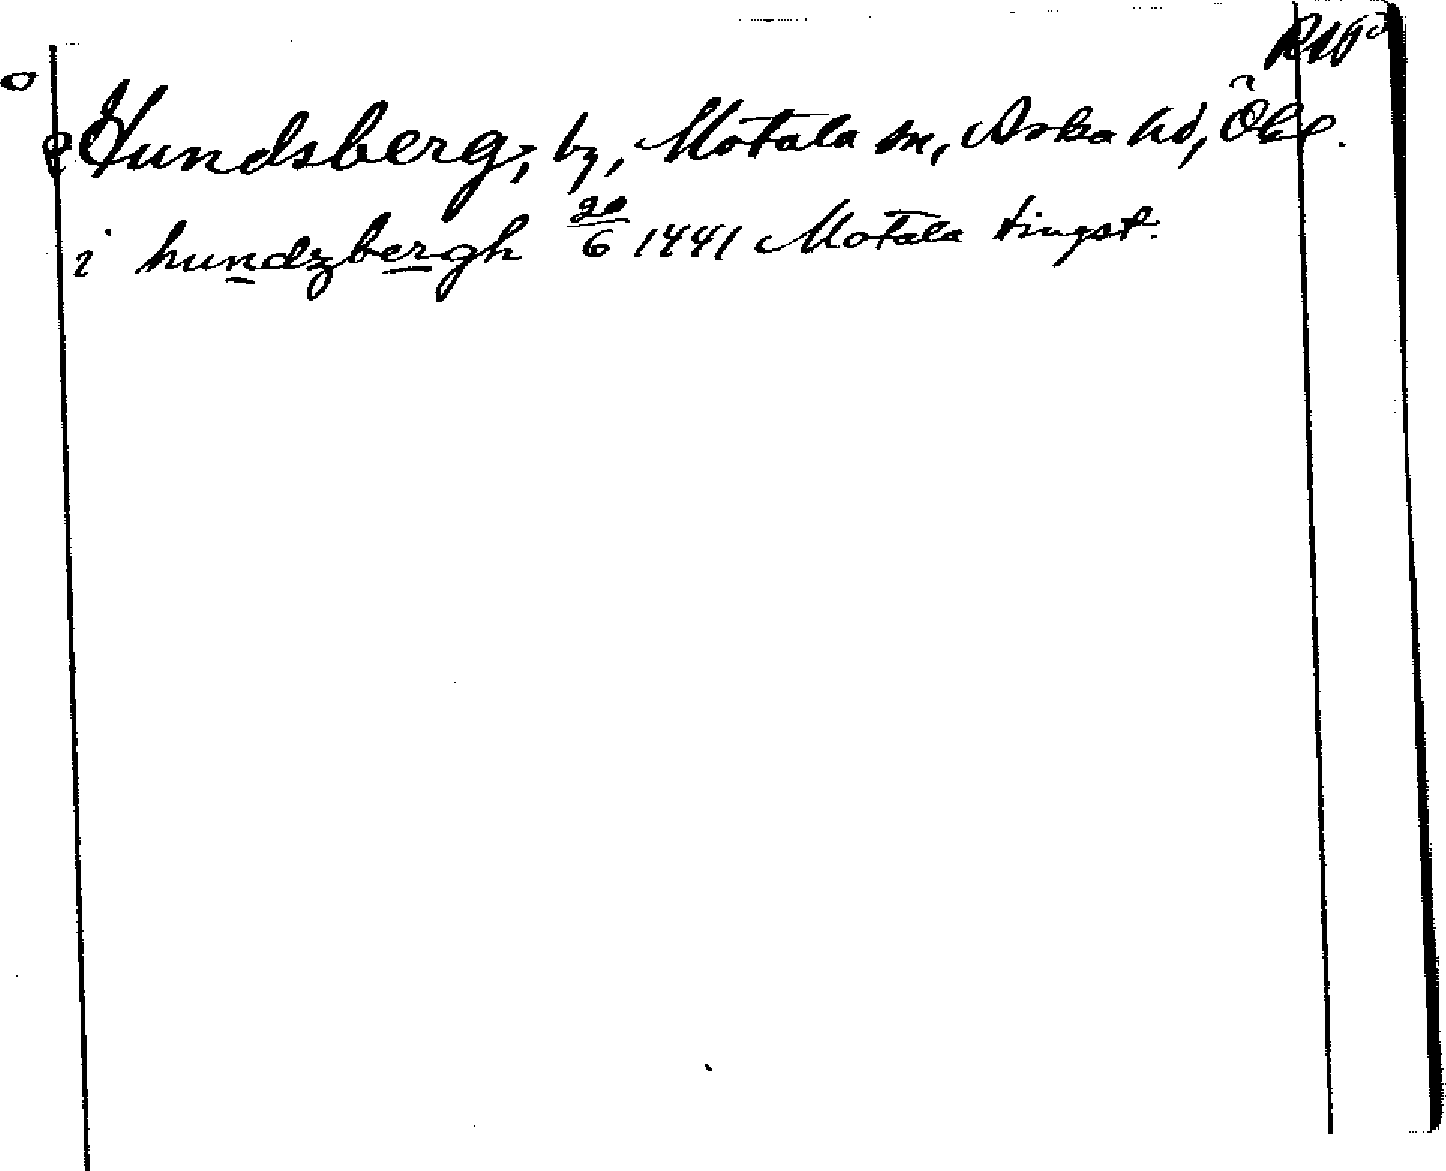 RAP
Hundsberg, by, Motala sn, Aska hd, Ögl.
i hundzbergh 20/6 1441 Motala tingst.